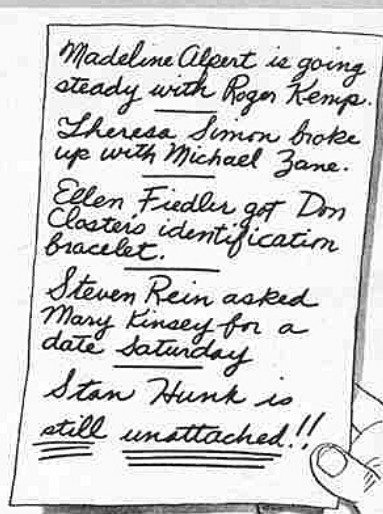 Madeline Alpert is going
steady with Roger Kemp.
Theresa Simon broke
up with Michael Zane.
Ellen Fiedler got Don
Closter's identification
bracelet.
Steven Rein asked
Mary Kinsey for a
date Saturday
Stan Hunk is
still unattached!!